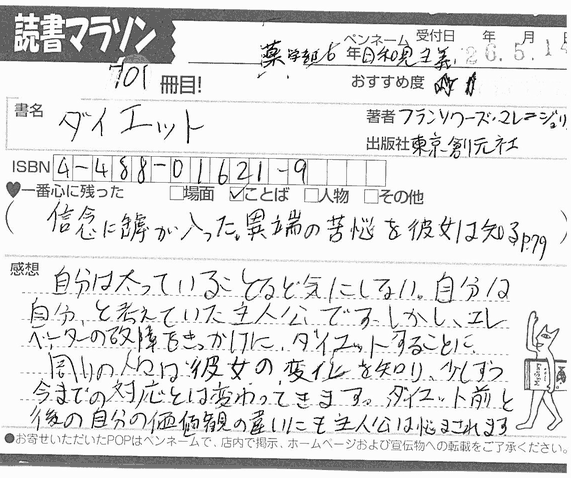 読書マラソン
701冊目!
薬学部6年 ペンネーム 日和見主義
受付日 年 月 日
26.5.14
おすすめ度
書名
ダイエット
著者 フランソワーズ・マレ=ジョリ
出版社 東京創元社
ISBN 4-488-01621-9
♥一番心に残った □場面 ☑ことば □人物 □その他
(信念に罅が入った。異端の苦悩を彼女は知る P.79)
感想
自分は太っていることなど気にしない。自分は
自分、と考えていた主人公ですが、しかし、エレ
ベーターの故障をきっかけに、ダイエットすることに。
周りの人は彼女の変化を知り、少しずつ
今までの対応とは変わってきます。ダイエット前と
後の自分の価値観の違いにも主人公は悩まされます
●お寄せいただいたPOPはペンネームで、店内で掲示、ホームページおよび宣伝物への転載をご了承ください。